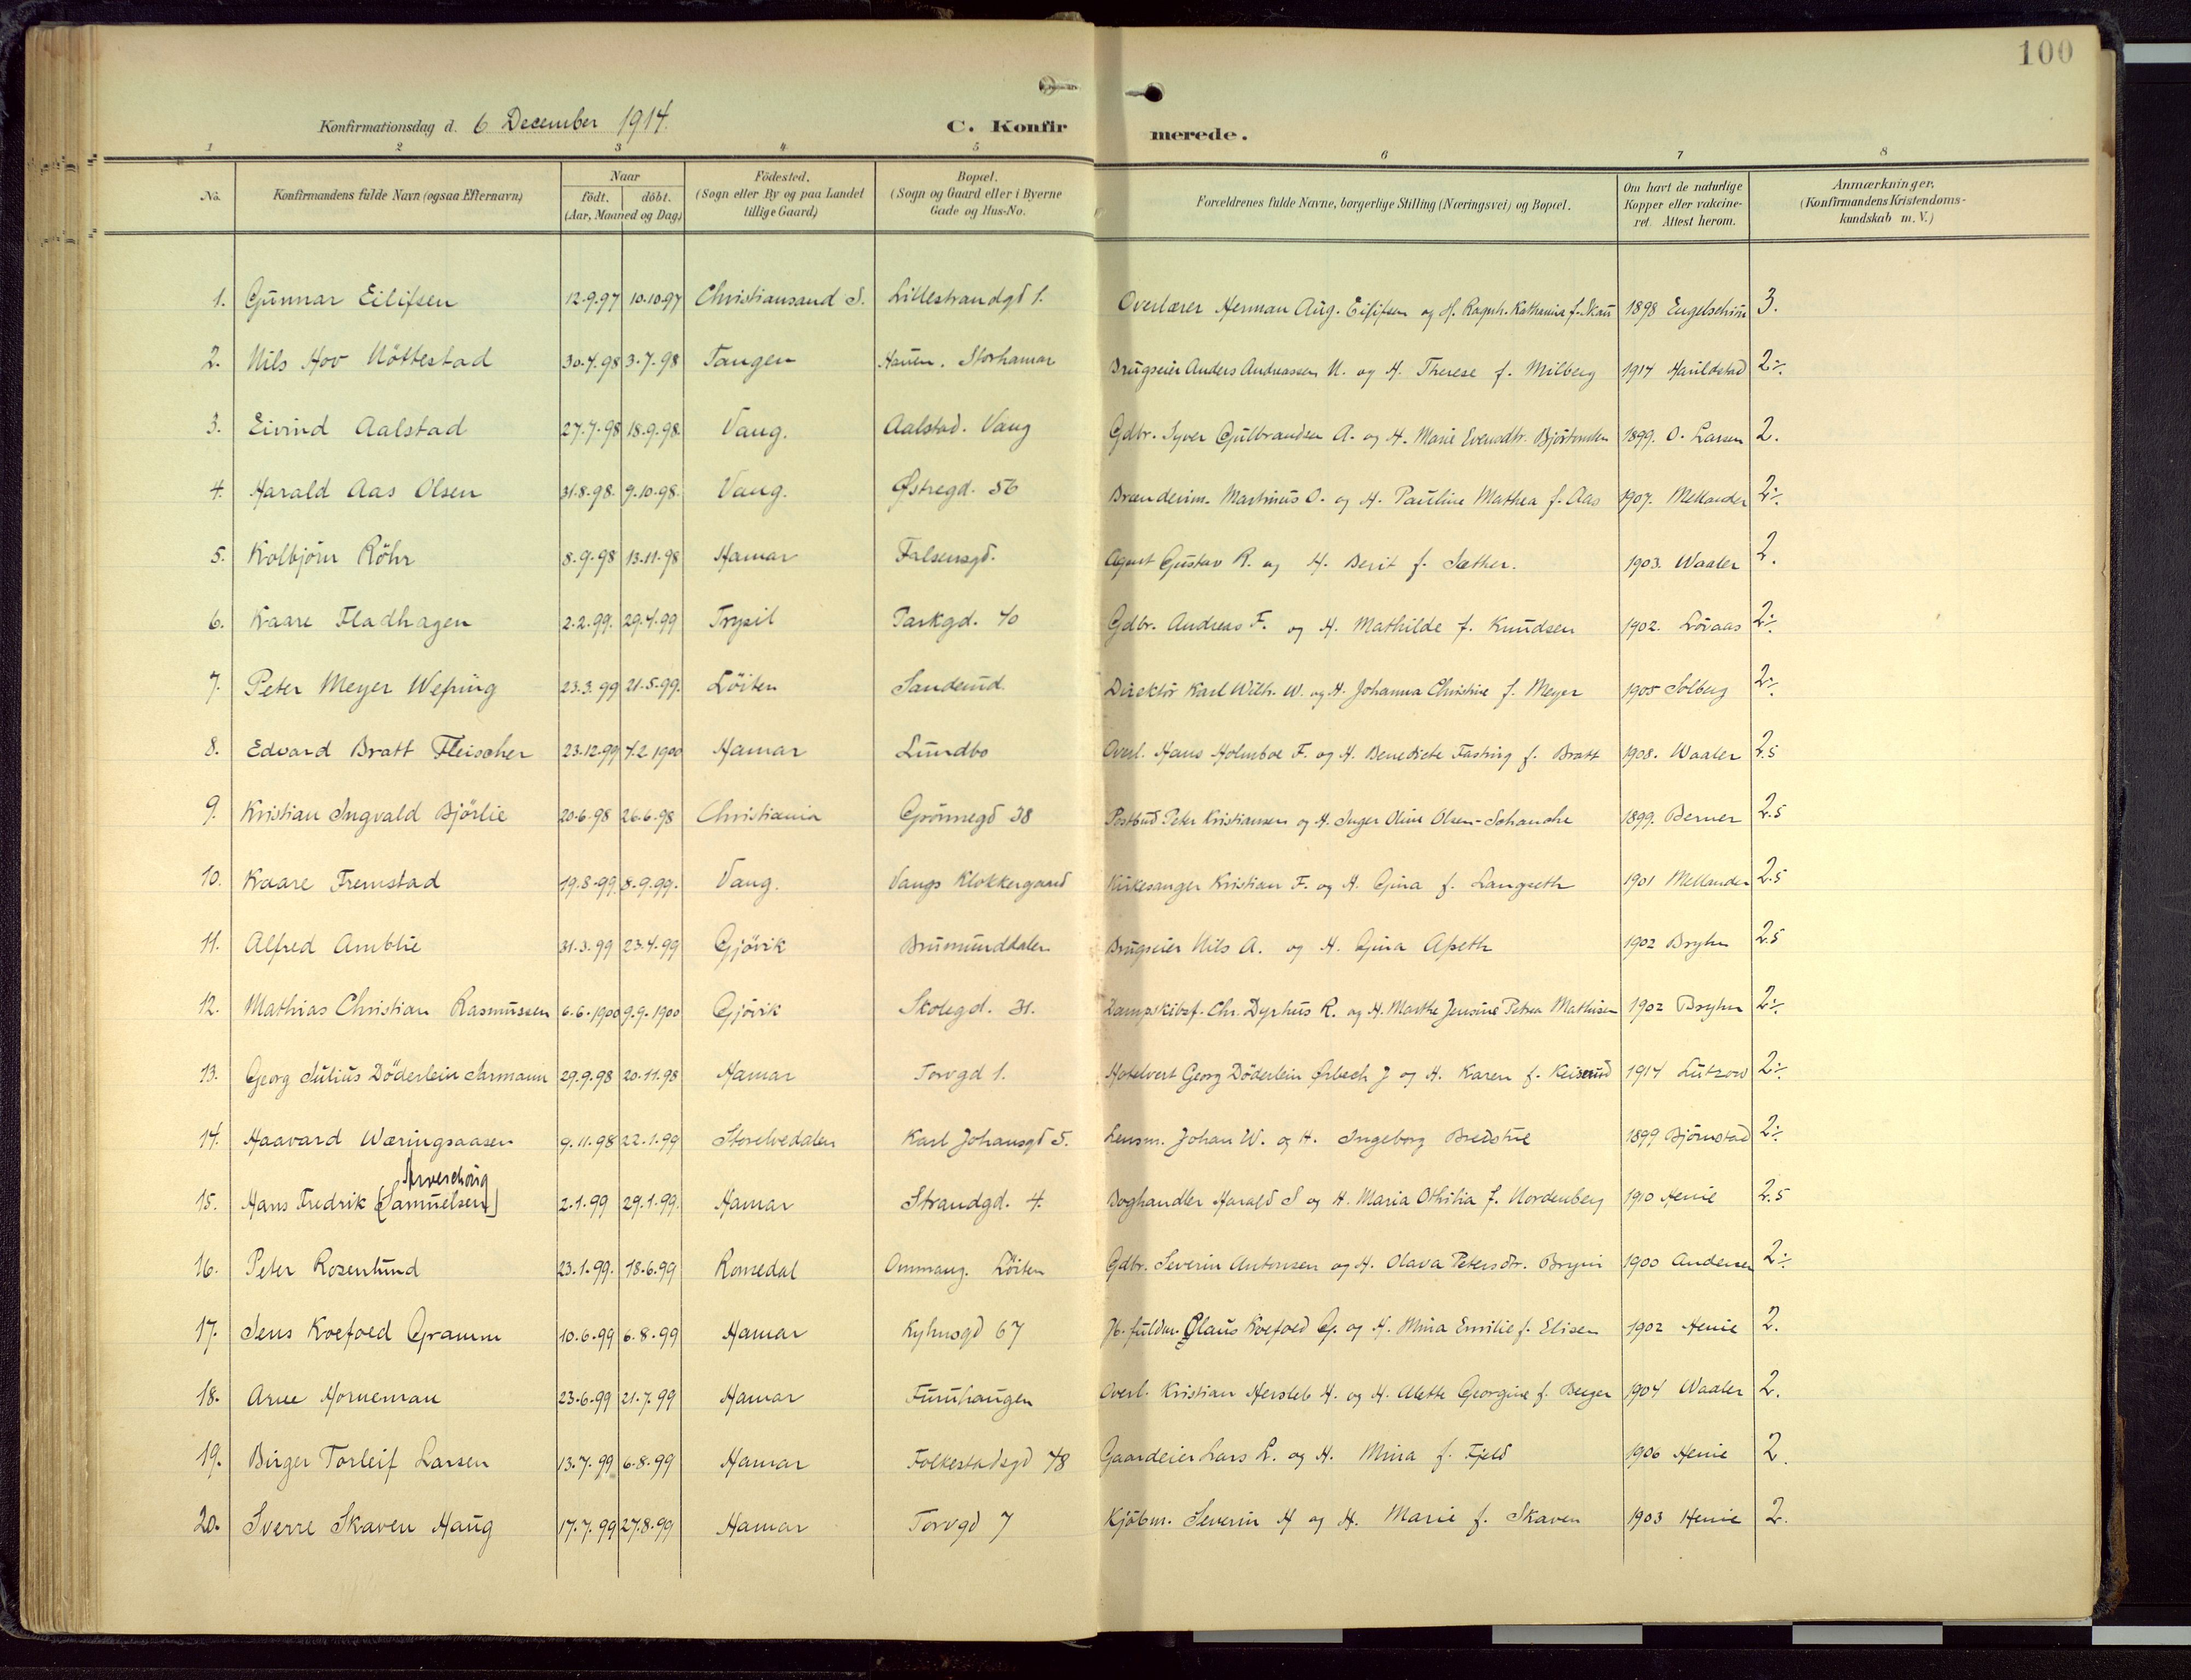 100
Konfirmationsdag d. 6 December 1914. C. Konfirmerede.
1 2 3 4 5 6 7 8
No. Konfirmandens fulde Navn (ogsaa Efternavn) Naar födt. döbt. (Aar, Maaned og Dag) Födested. (Sogn eller By og paa Landet tillige Gaard) Bopæl. (Sogn og Gaard eller i Byerne Gade og Hus-No. Forældrenes fulde Navne, borgerlige Stilling (Næringsvei) og Bopæl. Om havt de naturlige Kopper eller vakcineret. Attest herom. Anmærkninger, (Konfirmandens Kristendomskundskab m. V.)
1. Gunnar Eilifsen 12.9.97 10.10.97 Christiansand S. Lillestrandgd 1. Overlærer Herman Aug. Eilifsen og H. Ragnh. Kathanina f. Skau 1898 3.
2. Nils Hov Nöttestad 30.4.98 3.7.98 Tangen Storhamar Brugseier Anders Andreassen N. og H. Therese f. Milberg 1914 2÷.
3. Eivind Aalstad 27.7.98 18.9.98. Vang. Aalstad. Vang Gdbr. Syver Gulbrandsen A. og H. Marie Evensdtr. 1899. O. Larsen 2.
4. Harald Aas Olsen 31.8.98. 9.10.98. Vang. Østregd. 56 Martinus O. og H. Pauline Mathea f. Aas 1907. Mellander 2÷.
5. Kolbjörn Röhr 8.9.98 13.11.98 Hamar Falsensgd. Agent Gustav R. og H. Berit f. Sæther. 1903. Waaler 2.
6. Kaare Fladhagen 2.2.99. 29.4.99 Trysil Parkgd. 40 Gdbr. Andreas F. og H. Mathilde f. Knudsen 1902. Lövaas 2÷.
7. Peter Meyer Wefring 23.3.99 21.5.99. Löiten Sanderud. Direktör Karl Wilh. W. og H. Johanna Christine f. Meyer 1905 Solberg 2÷.
8. Edvard Bratt Fleischer 23.12.99 4.2.1900 Hamar Lundbo Overl. Hans Holmboe F. og H. Benedicte Fasting f. Bratt 1908. Waaler 2.5
9. Kristian Ingvald Bjørlie 20.6.98 26.6.98 Christiania Grönnegd 38 Postbud Peter Kristiansen og H. Inger Oline Olsen-Schanche 1899. Berner 2.5
10. Kaare Fremstad 19.8.99. 8.9.99. Vang. Vangs Klokkergaard Kirkesanger Kristian F. og H. Gina f. Langseth 1901 Mellander 2.5
11. Alfred Amblie 31.3.99 23.4.99 Gjövik Brumunddalen Brugseier Nils A. og H. Gina Asseth 1902 Bryhn 2.5
12. Mathias Christian Rasmussen 6.6.1900 9.9.1900 Gjövik Skolegd. 31. Dampskibsf. Chr. Dyrhus R. og H. Marthe Jensine Petrea Mathisen 1902 Bryhn 2÷.
13. Georg Julius Döderlein Jarmann 29.9.98 20.11.98 Hamar Torvgd 1. Hotelvert Georg Döderlein Ørbech J og H. Karen f. Keiserud 1914 Lutzow 2÷.
14. Haavard Wæringsaasen 9.11.98 22.1.99 Storelvedalen Karl Johansgd 5. Lensm. Johan W. og H. Ingeborg Bredslie 1899 Björnstad 2÷.
Arveschoug
15. Hans Fredrik [Samuelsen] 2.1.99 29.1.99. Hamar Strandgd. 4. Boghandler Harald S og H. Maria Othilia f. Nordenberg 1910 Henie 2.5
16. Peter Rosenlund 23.1.99. 18.6.99 Romedal Ommang. Löiten Gdbr. Severin Antonsen og H. Olava Petersdtr. Bryni 1900 Andersen 2÷.
17. Jens Koefoed Gramm 10.6.99 6.8.99 Hamar Kyhnsgd 67 fuldm. Claus Koefoed G. og H. Mina Emilie f. Elisen 1902 Henie 2.
18. Arne Horneman 23.6.99 21.7.99 Hamar Furuhaugen Overl. Kristian Hersleb H. og H. Alette Georgine f. Berger 1904 Waaler 2.
19. Birger Torleif Larsen 13.7.99 6.8.99 Hamar Folkestadsgd 48 Gaardeier Lars L. og H. Mina f. Fjeld 1906 Henie 2.
20. Sverre Skaven Haug 17.7.99 27.8.99 Hamar Torvgd 7 Kjöbm. Severin H og H. Marie f. Skaven 1903 Henie 2.